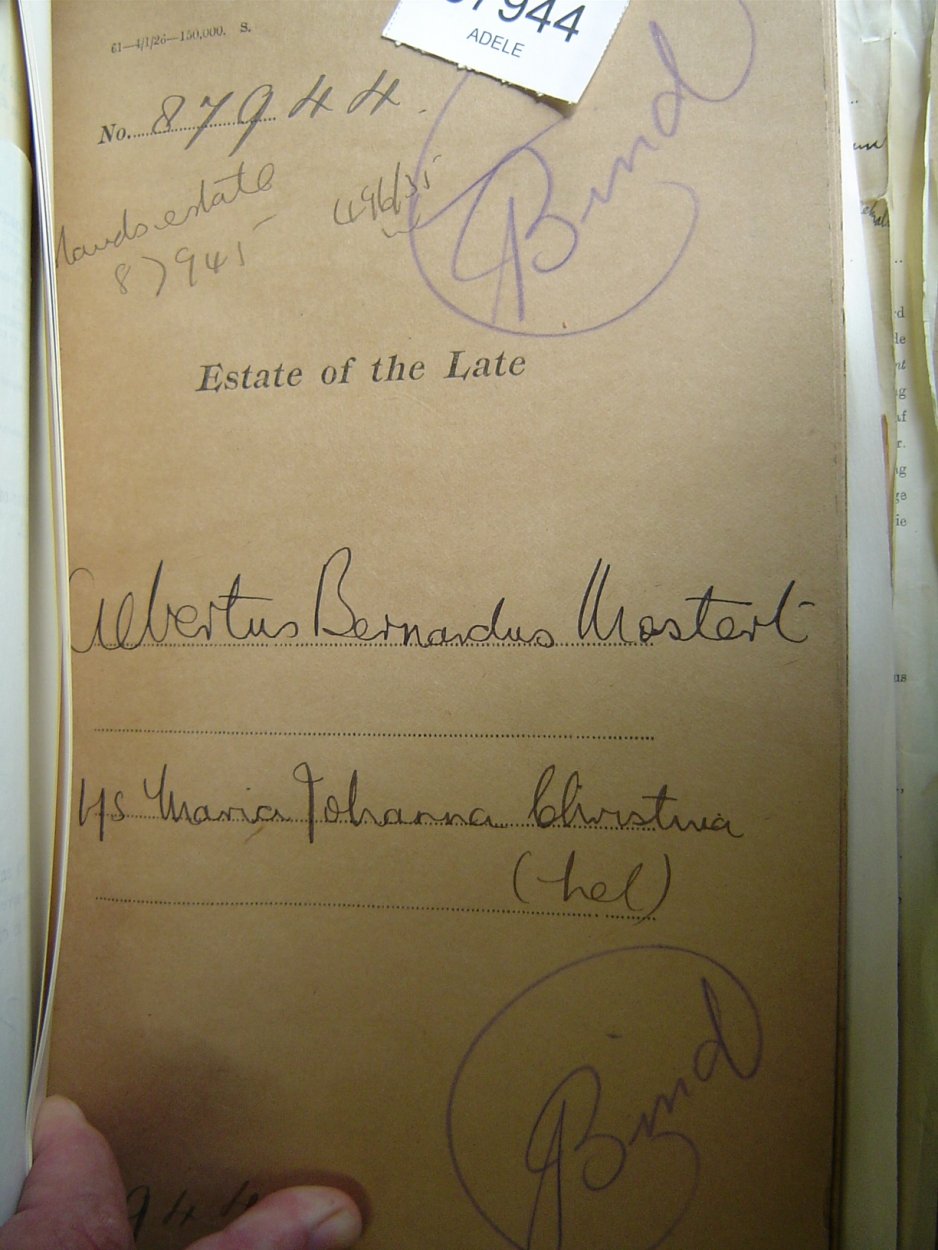 61—4/1/26—150,000. S.
7944
ADELE
No. 87944.
Bind
estate
87945
496/35
Estate of the Late
Albertus Bernardus Mostert
Ys Maria Johanna Christina
(hel)
Bind
944